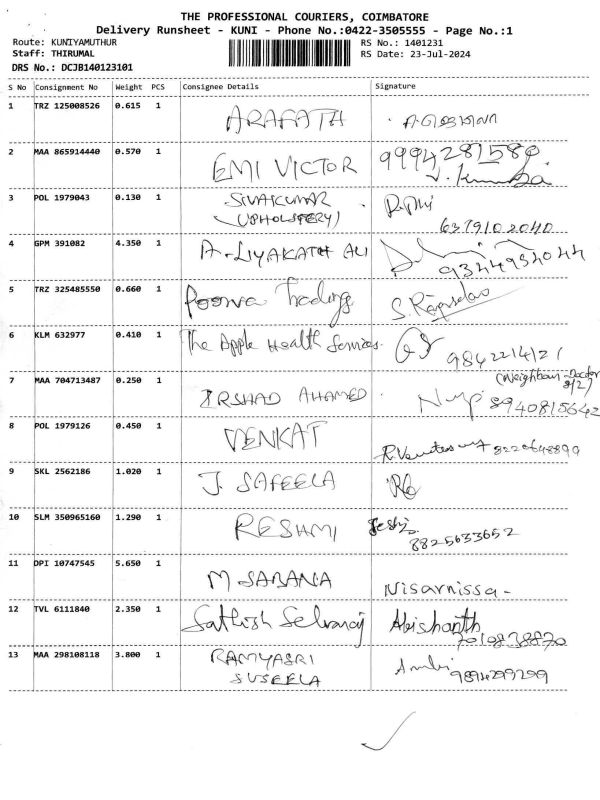 THE PROFESSIONAL COURIERS, COIMBATORE
Delivery Runsheet - KUNI - Phone No.:0422-3505555 - Page No.:1
Route: KUNIYAMUTHUR RS No.: 1401231
Staff: THIRUMAL RS Date: 23-Jul-2024
DRS No.: DCJB140123101
S No Consignment No Weight PCS Consignee Details Signature
1 TRZ 125008526 0.615 1 ARAFATH
2 MAA 865914440 0.570 1 EMI VICTOR 9994281580
3 POL 1979043 0.130 1 SIVAKUMAR
(UPHOLSTERY) 6379102040
4 GPM 391082 4.350 1 A. LIYAKATH ALI 9344934044
5 TRZ 325485550 0.660 1 Poorva Trading
6 KLM 632977 0.410 1 The Apple Health Services. 9842214121
(Neighbour - Doctor
7 MAA 704713487 0.250 1 IRSHAD AHAMED 8940815642
8 POL 1979126 0.450 1 VENKAT 8220648899
9 SKL 2562186 1.020 1 J. SAFEELA
10 SLM 350965160 1.290 1 RESHMI
8825633652
11 DPI 10747545 5.650 1 M SABANA Nisarnissa -
12 TVL 6111840 2.350 1 Sathish Selvaraj Abishanth
7010838870
13 MAA 298108118 3.800 1 RAMYASRI Ambi
SUSEELA 9894299299